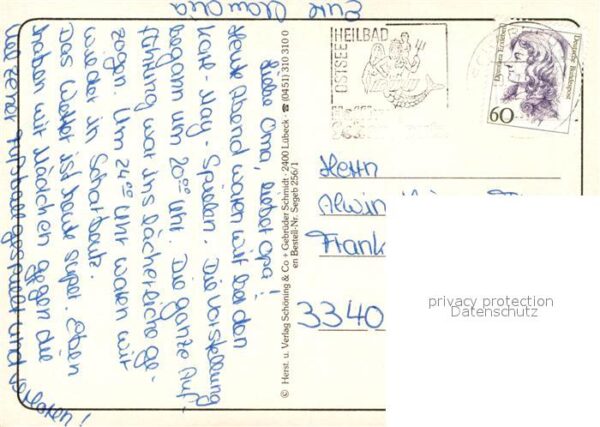 Liebe Oma, lieber Opa!
Heute Abend waren wir bei den
Karl-May-Spielen. Die Vorstellung
begann um 20⁰⁰ Uhr. Die ganze Auf-
führung war ins lächerliche ge-
zogen. Um 24⁰⁰ Uhr waren wir
wieder in Scharbeutz.
Das Wetter ist heute super. Eben
haben wir Mädchen gegen die
Fußball gespielt und verloren!
Eure
© Herst. u. Verlag Schöning & Co + Gebrüder Schmidt · 2400 Lübeck · ☎ (0451) 310 310 0
en Bestell-Nr. Segeb 256/1
OSTSEE
HEILBAD
Dorothea Erxleben
Deutsche Bundespost
60
Herrn
Alwin
Frank
3340
privacy protection
Datenschutz